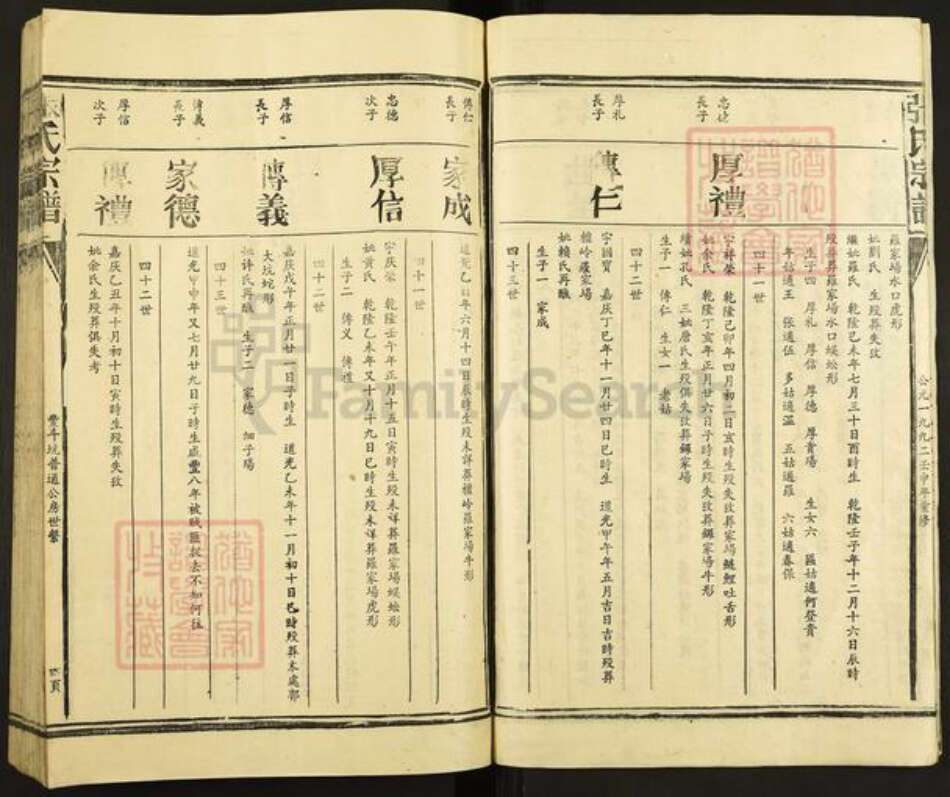 張氏宗譜
公元一九九二壬申年重修
羅家場水口虎形
妣劉氏 生殁葬失攷
繼妣羅氏 乾隆己未年七月三十日酉時生 乾隆壬子年十二月十六日辰時
殁葬葬羅家場水口蜈蚣形
生子四 厚礼 厚信 厚德 厚貴場 生女六 區姑適何登貴
年姑適王 張適伍 多姑適溫 五姑適羅 六姑適春保
四十一世
忠德
長子
厚禮
字祥榮 乾隆己卯年四月初二日亥時生殁失攷葬家場鯪鯉吐舌形
妣余氏 乾隆丁亥年正月廿六日子時生殁失攷葬羅家場牛形
續妣孔氏 三妣唐氏生殁俱失攷葬羅家場
生子一 傳仁 生女一 老姑
四十二世
厚礼
長子
傳仁
字國寶 嘉庆丁巳年十一月廿四日巳時生 道光甲午年五月吉日吉時殁葬
檀岭羅家場
妣賴氏再醮
生子一 家成
四十三世
傳仁
長子
家成
道光乙酉年六月十四日辰時生殁未詳葬檀岭羅家場牛形
四十一世
忠德
次子
厚信
字庆榮 乾隆壬午年正月十五日寅時生殁未詳葬羅家場蜈蚣形
妣黃氏 乾隆乙未年又十月十九日巳時生殁未詳葬羅家場虎形
生子二 傳义 傳禮
四十二世
厚信
長子
傳義
嘉庆戊午年正月廿一日子時生 道光乙未年十一月初十日巳時殁葬本處郭
大坑坨形
妣許氏再醮 生子二 家德 細子場
四十三世
傳義
長子
家德
道光甲申年又七月廿九日子時生咸豐八年被贼匪扯去不知何往
四十二世
厚信
次子
傳禮
嘉庆乙丑年十月初十日寅時生殁葬失攷
妣余氏生殁葬俱失考
張氏宗譜
豊斗坑普通公房世繫
四頁
FamilySearch